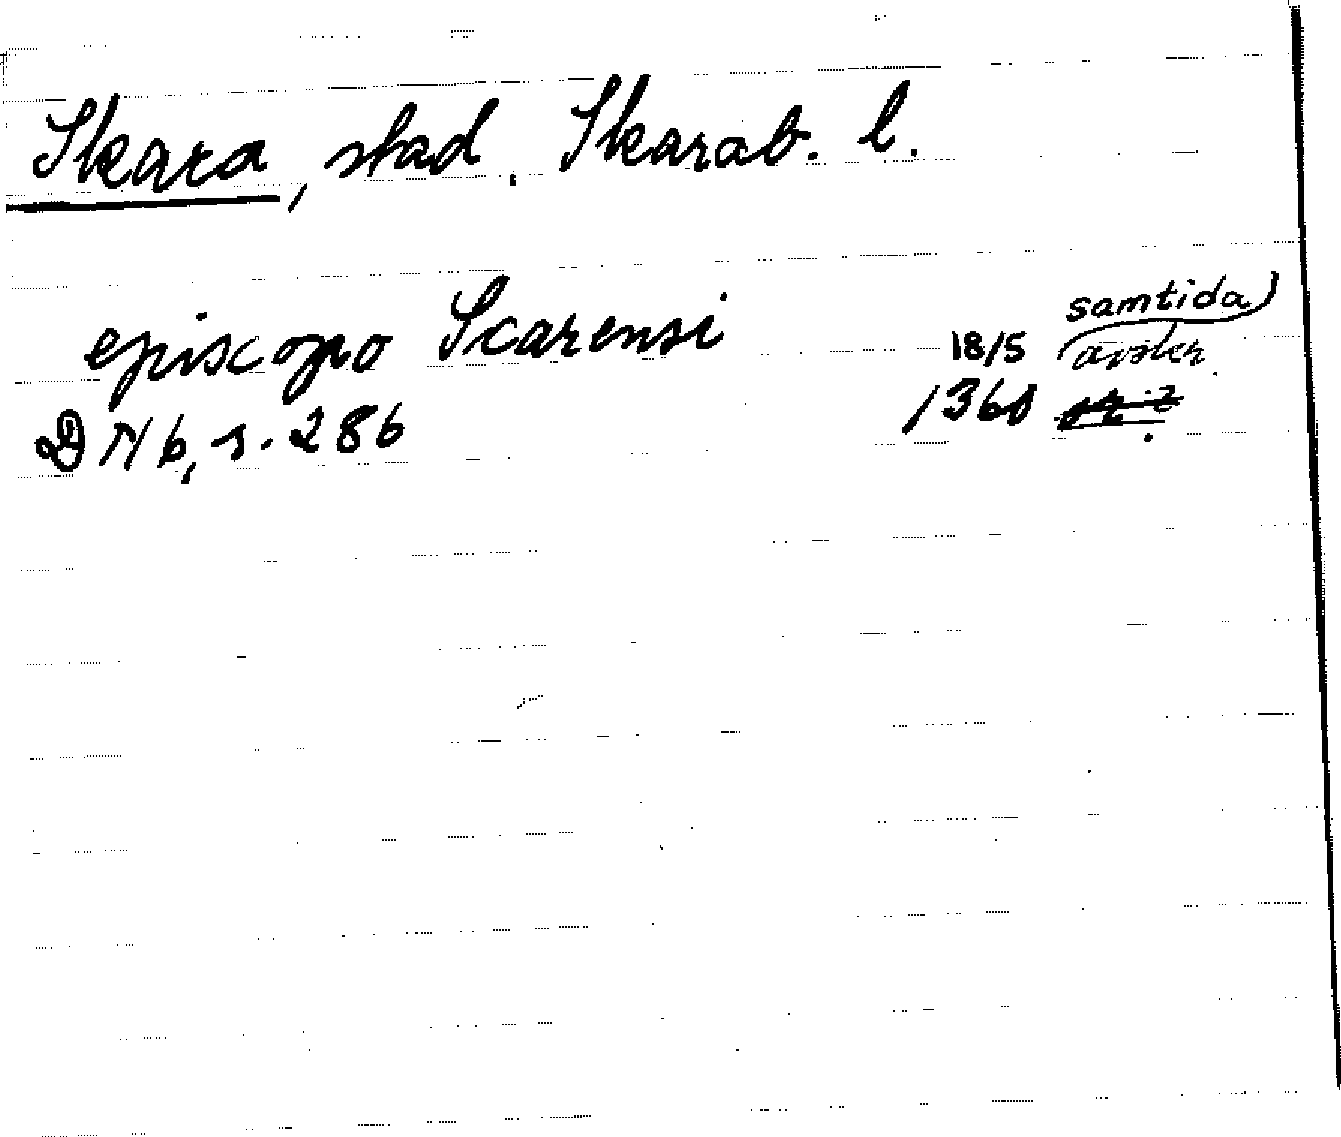 Skara, stad. Skarab. l.
episcopo Scarensi 18/5 samtida avskr.
DN 6, s. 286 1360